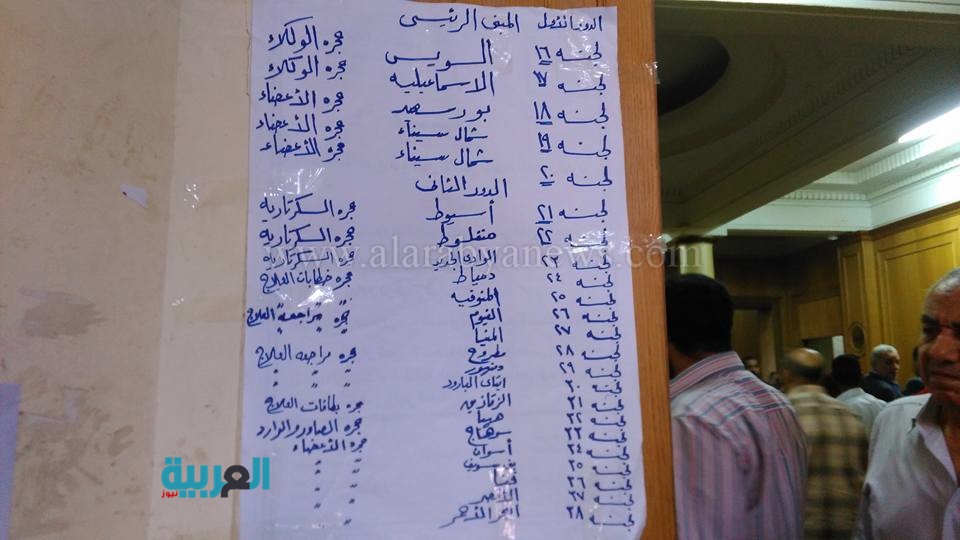 الدور الأول المبنى الرئيسى
لجنه ١٦ السويس حجره الوكلاء
لجنه ١٧ الاسماعيليه حجره الوكلاء
لجنه ١٨ بورسعيد حجره الأعضاء
لجنه ١٩ شمال سيناء حجره الأعضاء
لجنه ٢٠ شمال سيناء حجره الأعضاء
الدور الثانى
لجنه ٢١ أسيوط حجره السكرتاريه
لجنه ٢٢ منفلوط حجره السكرتاريه
لجنه ٢٣ الوادى الجديد حجره السكرتاريه
لجنه ٢٤ دمياط حجره خطابات العلاج
لجنه ٢٥ المنوفيه " "
لجنه ٢٦ الفيوم حجره مراجعه العلاج
لجنه ٢٧ المنيا " "
لجنه ٢٨ مطروح حجره مراجعه العلاج
لجنه ٢٩ دمنهور " " "
لجنه ٣٠ ايتاى البارود " " "
لجنه ٣١ الزقازيق حجره بطاقات العلاج
لجنه ٣٢ ههيا حجره الصادر والوارد
لجنه ٣٣ سوهاج حجره الأعضاء
لجنه ٣٤ أسوان " "
لجنه ٣٥ بنى سويف " "
لجنه ٣٦ قنا " "
لجنه ٣٧ الأقصر " "
لجنه ٣٨ البحر الأحمر " "
www.alarabyanews.com
العربية
نيوز